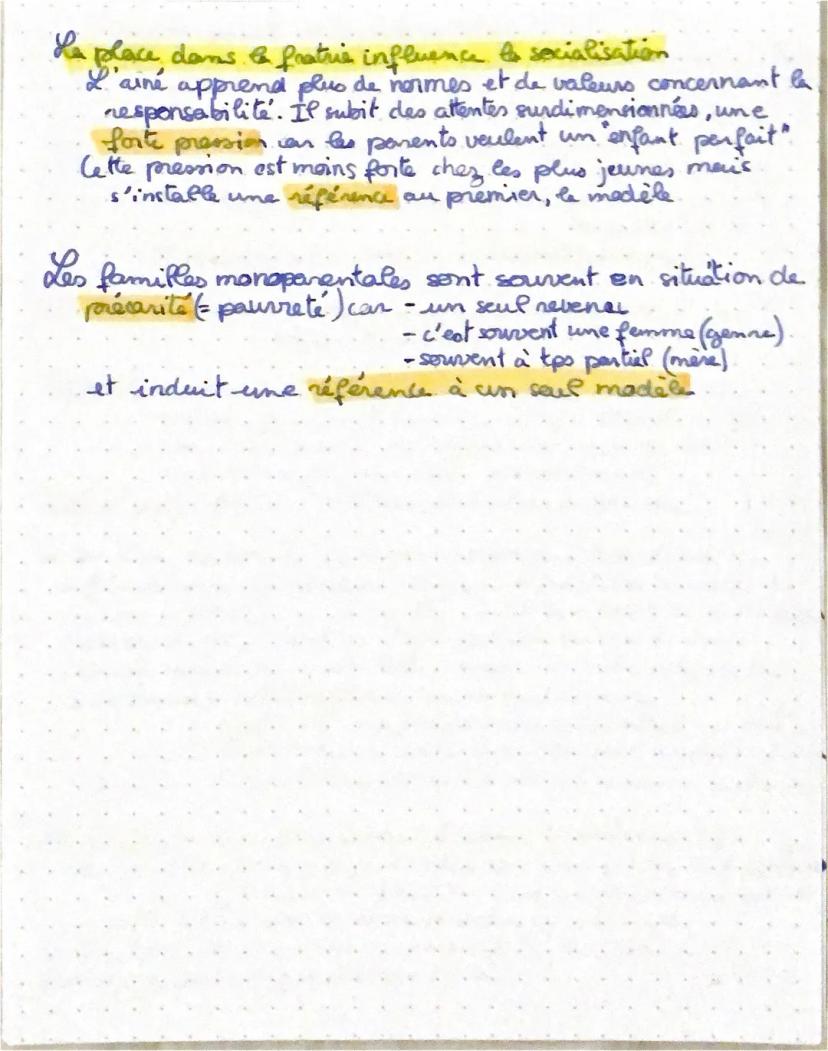 La place dans la fratrie influence la socialisation
L'ainé apprend plus de normes et de valeurs concernant la
responsabilité. Il subit des attentes surdimensionnées, une
forte pression car les parents veulent un "enfant parfait"
Cette pression est moins forte chez les plus jeunes mais
s'installe une référence au premier, le modèle
Les familles monoparentales sont souvent en situation de
précarité (= pauvreté) car - un seul revenu
- c'est souvent une femme (genre)
- souvent à tps partiel (mère)
et induit une référence à un seul modèle